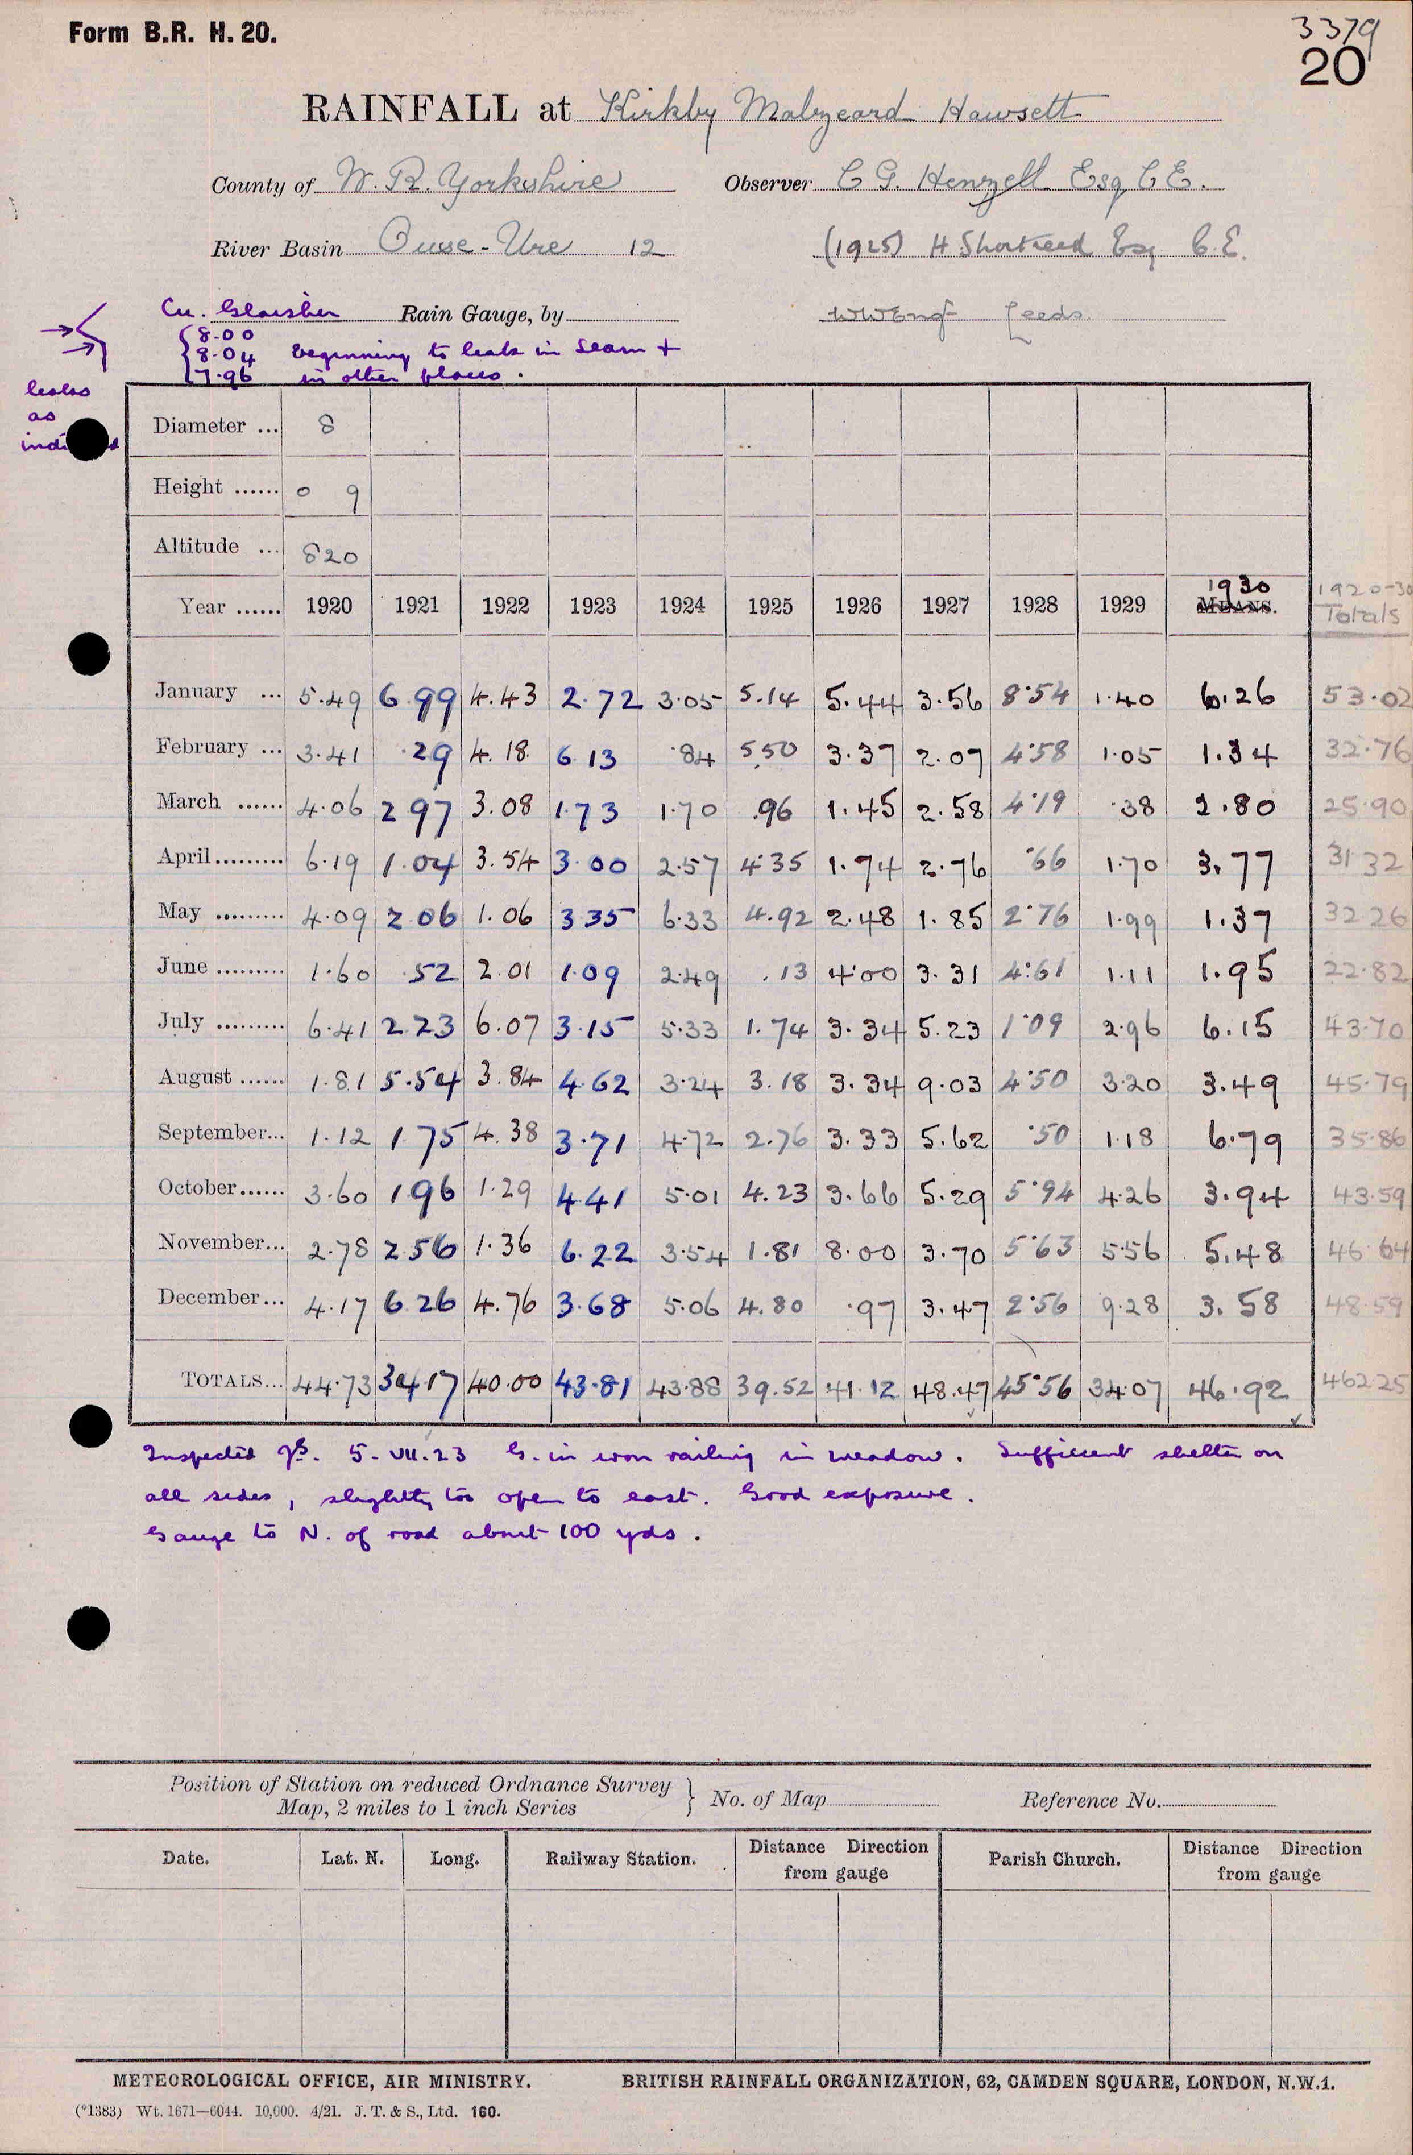 Form B.R. H. 20.
3379
20
RAINFALL at Kirkby Malzeard Hawsett
County of W. R. Yorkshire Observer C G. Henzell Esq C E.
River Basin Ouse - Ure 12 (1925) H Shortreed Esq C.E.
Cu. Glaisher Rain Gauge, by WWEng Leeds
8.00
8.04 beginning to leak in seam +
7.96 in other places.
leaks
as
Diameter ... 8
Height ...... 0 9
Altitude ... 820
Year ...... 1920 1921 1922 1923 1924 1925 1926 1927 1928 1929 MEANS. 1930 1920-30 Totals
January ... 5.49 6.99 4.43 2.72 3.05 5.14 5.44 3.56 8.54 1.40 6.26 53.02
February ... 3.41 .29 4.18 6 13 .84 5.50 3.37 2.07 4.58 1.05 1.34 32.76
March ...... 4.06 2 97 3.08 1.73 1.70 .96 1.45 2.58 4.19 .38 2.80 25.90
April ......... 6.19 1.04 3.54 3.00 2.57 4.35 1.74 2.76 .66 1.70 3.77 31 32
May ......... 4.09 2 06 1.06 3 35 6.33 4.92 2.48 1.85 2.76 1.99 1.37 32 26
June ......... 1.60 .52 2.01 1.09 2.49 .13 4.00 3.31 4.61 1.11 1.95 22.82
July ......... 6.41 2.23 6.07 3.15 5.33 1.74 3.34 5.23 1.09 2.96 6.15 43.70
August ...... 1.81 5.54 3.84 4.62 3.24 3.18 3.34 9.03 4.50 3.20 3.49 45.79
September... 1.12 1.75 4.38 3.71 4.72 2.76 3.33 5.62 .50 1.18 6.79 35.86
October...... 3.60 1 96 1.29 4.41 5.01 4.23 3.66 5.29 5.94 4.26 3.94 43.59
November... 2.78 2 56 1.36 6.22 3.54 1.81 8.00 3.70 5.63 5.56 5.48 46.64
December... 4.17 6 26 4.76 3.68 5.06 4.80 .97 3.47 2.56 9.28 3.58 48.59
TOTALS... 44.73 34 17 40.00 43.81 43.88 39.52 41.12 48.47 45.56 34.07 46.92 462.25
Inspected 5.VII.23 G. in iron railing in meadow. Sufficient shelter on
all sides, slightly too open to east. Good exposure.
Gauge to N. of road about 100 yds.
Position of Station on reduced Ordnance Survey
Map, 2 miles to 1 inch Series } No. of Map Reference No.
Date. Lat. N. Long. Railway Station. Distance Direction from gauge Parish Church. Distance Direction from gauge
METEOROLOGICAL OFFICE, AIR MINISTRY. BRITISH RAINFALL ORGANIZATION, 62, CAMDEN SQUARE, LONDON, N.W.1.
(*1383) Wt. 1671—6044. 10,000. 4/21. J. T. & S., Ltd. 160.